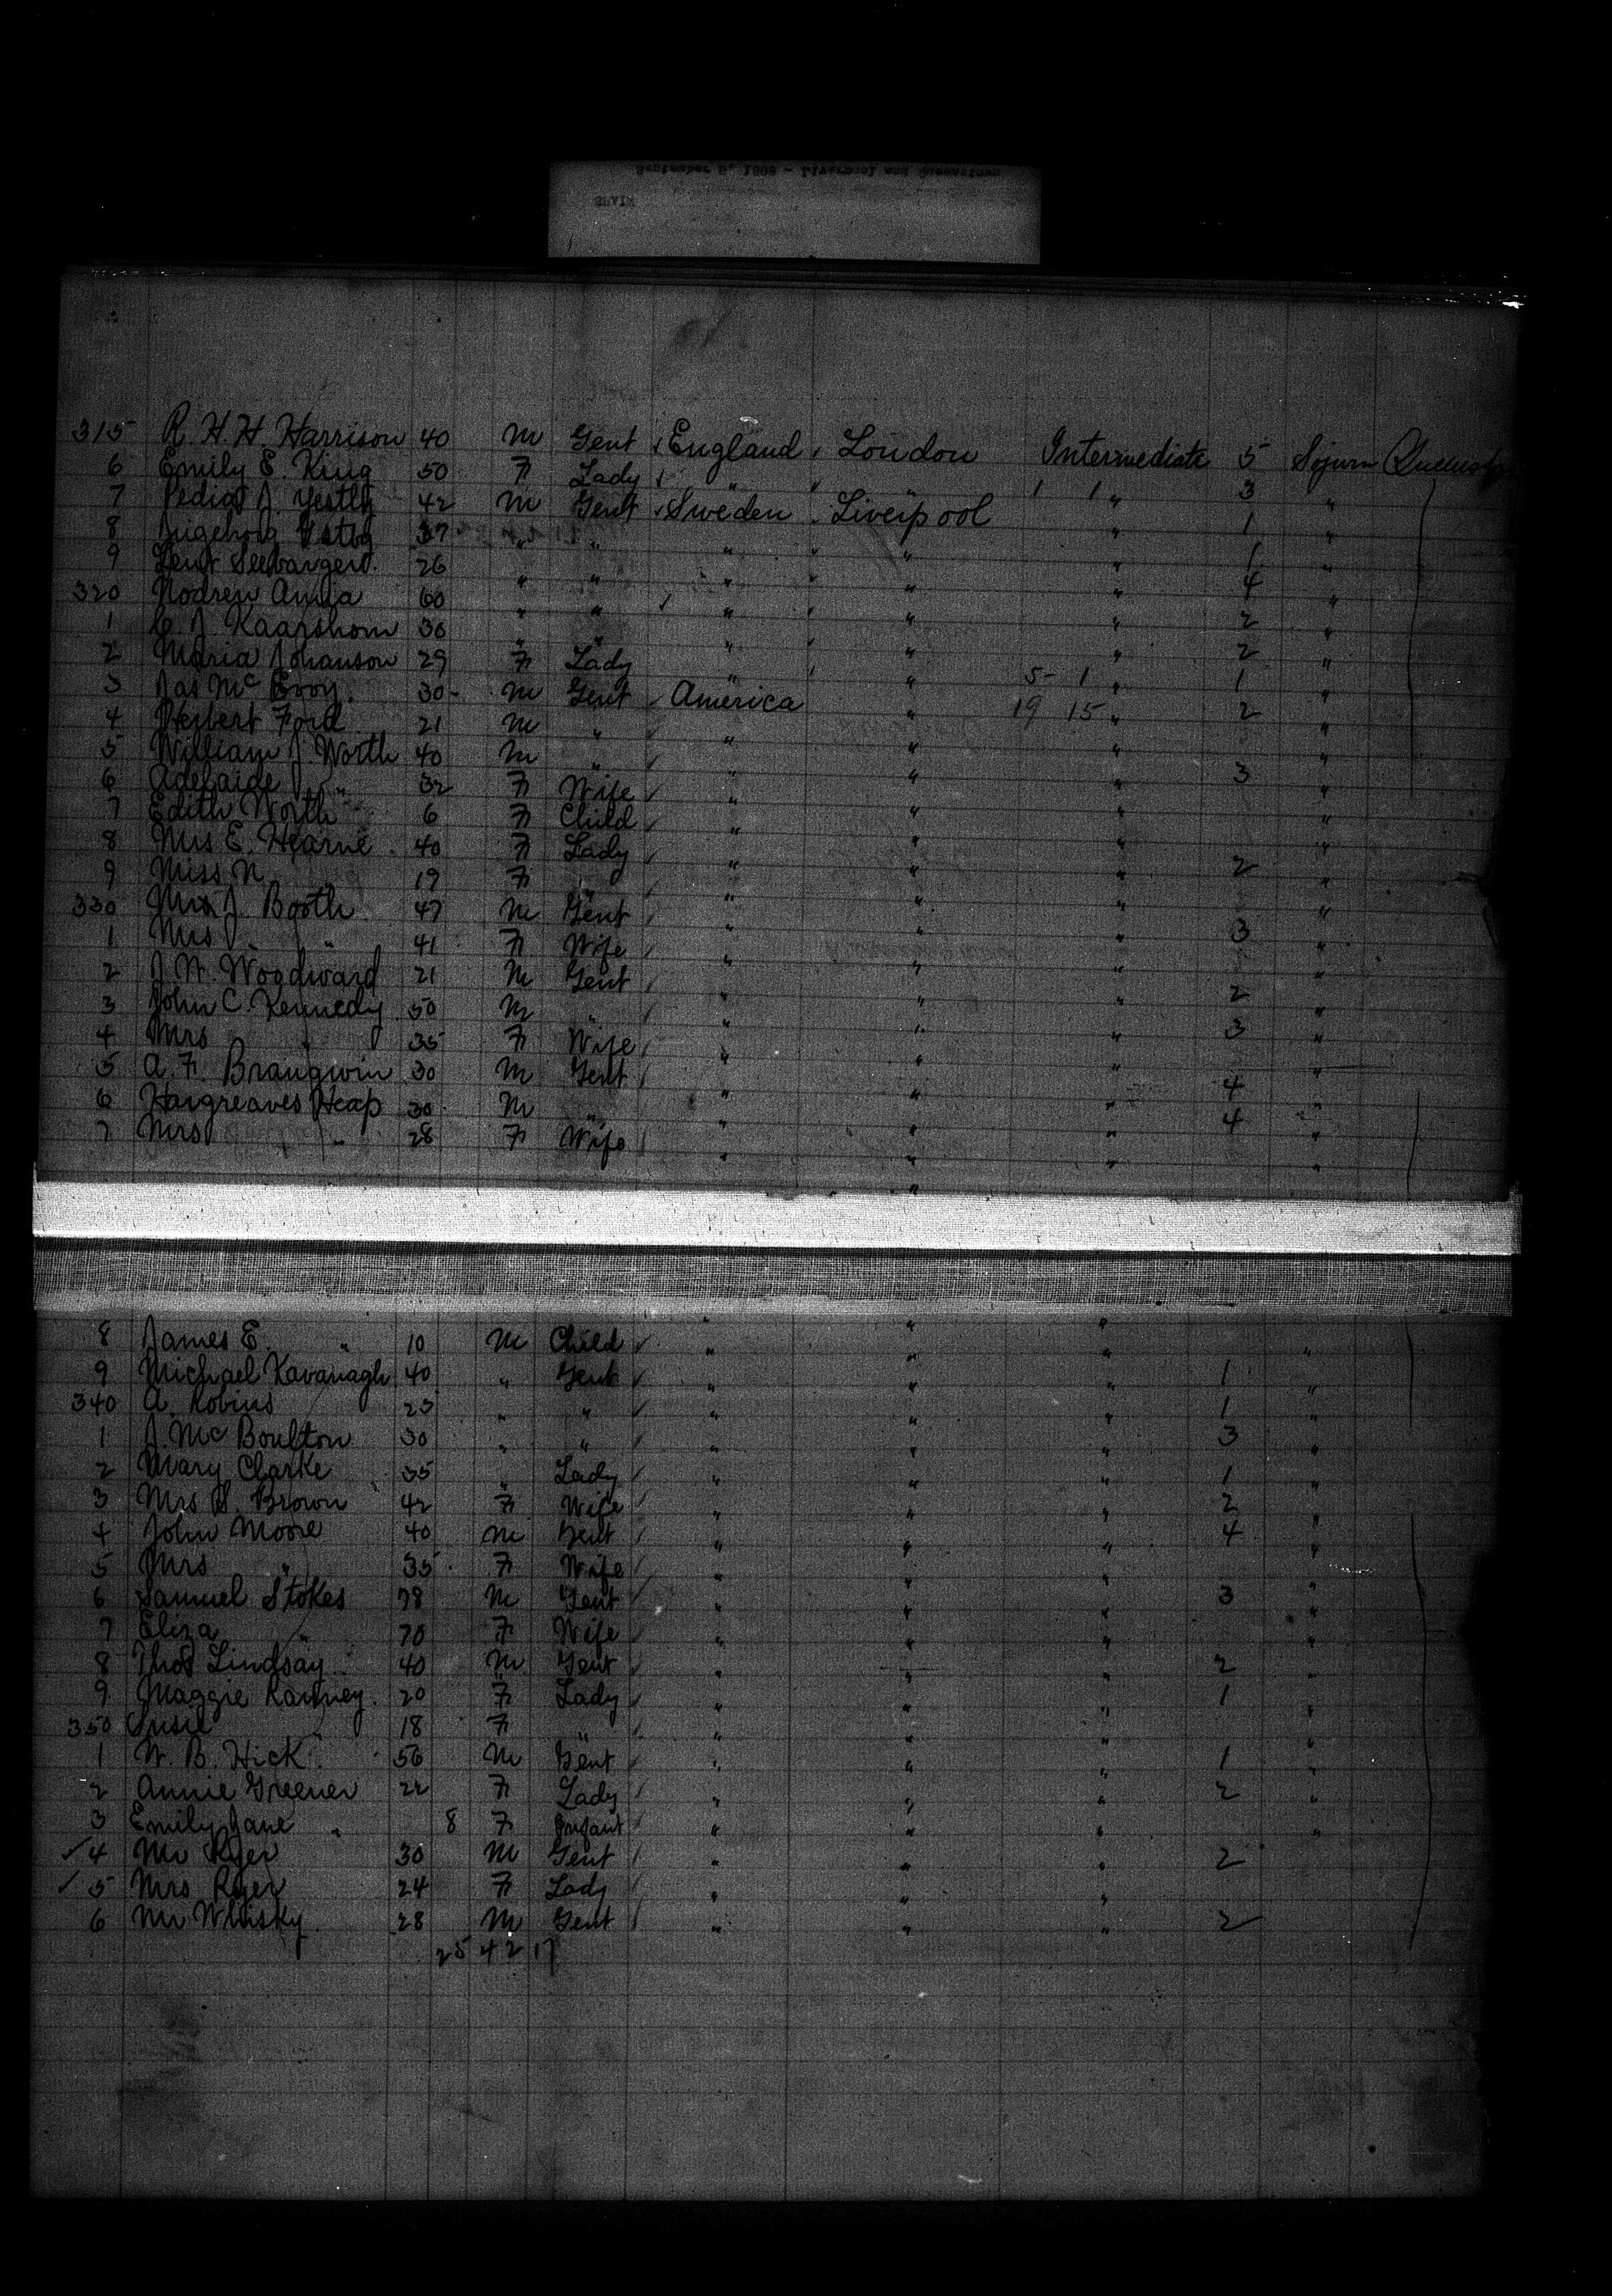 September 5, 1898 - Liverpool and Queenstown
SPAIN
315 R. H. H. Harrison 40 M Gent England London Intermediate 5 Sojurn
6 Emily E. King 50 F Lady " " 1 1 " 3 "
7 42 M Gent Sweden Liverpool " 1 "
8 37 " " " " " 1 "
9 26 " " " " " 4 "
320 Nodren Anna 60 " " " " " 2 "
1 C. J. Kaarshom 36 " " " " " 2 "
2 Maria Johanson 29 F Lady " " 5 - 1 " 1 "
3 Jas McEvoy 30 M Gent America " 19 15 " 2 "
4 Herbert Ford 21 M " " " " "
5 William J. Worth 40 M " " " " 3 "
6 Adelaide " 32 F Wife " " " "
7 Edith Worth 6 F Child " " " "
8 Mrs E. Hearne 40 F Lady " " " 2 "
9 Miss N. 19 F " " " " "
330 J. Booth 47 M Gent " " " 3 "
1 Mrs " 41 F Wife " " " "
2 J. W. Woodward 21 M Gent " " " 2 "
3 John C. Kennedy 50 M " " " " 3 "
4 Mrs " 35 F Wife " " " "
5 A. F. Brangwin 30 M Gent " " " 4 "
6 Hargreaves Heap 30 M " " " " 4 "
7 Mrs " 28 F Wife " " " "
8 James E. " 10 M Child " " " "
9 Michael Kavanagh 40 " Gent " " " 1 "
340 A. Robins 25 " " " " " 1 "
1 J. Mc Boulton 30 " " " " " 3 "
2 Mary Clarke 35 " Lady " " " 1 "
3 Mrs S. Brown 42 F Wife " " " 2 "
4 John Moore 40 M Gent " " " 4 "
5 Mrs " 35 F Wife " " " "
6 Samuel Stokes 78 M Gent " " " 3 "
7 Eliza " 70 F Wife " " " "
8 Thos Lindsay 40 M Gent " " " 2 "
9 Maggie Ranney 20 F Lady " " " 1 "
350 Susie " 18 F " " " "
1 W. B. Hick 56 M Gent " " " 1 "
2 Annie Greener 22 F Lady " " " 2 "
3 Emily Jane " 8 F Infant " " " "
4 Mr Ryer 30 M Gent " " " 2
5 Mrs Ryer 24 F Lady " " "
6 Mr Whisky 28 M Gent " " " 2
25 42 17